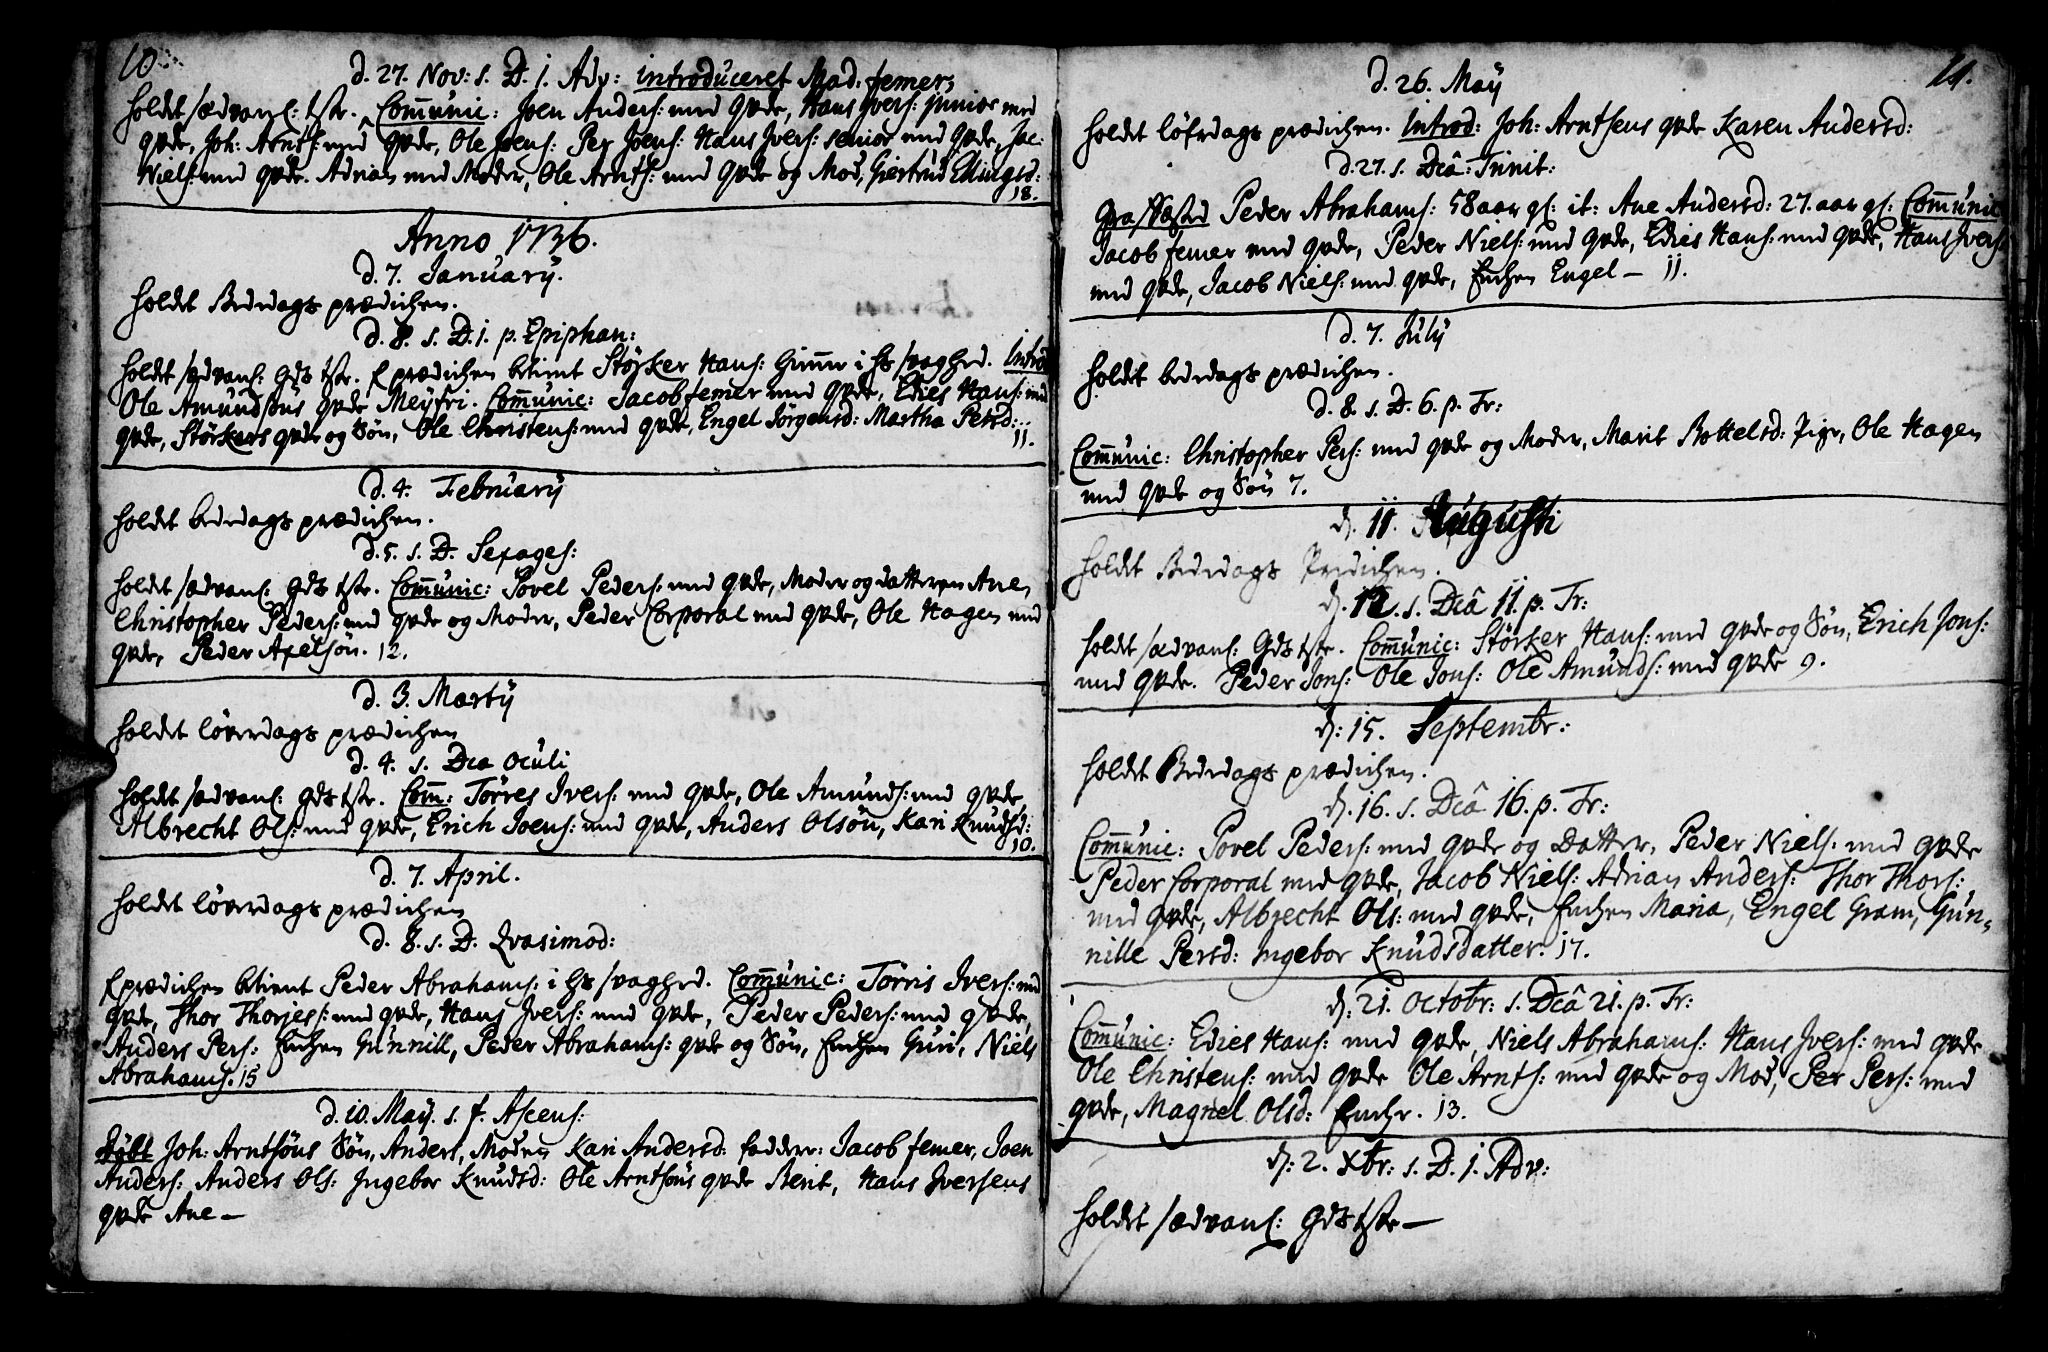 10
d. 27. Nov: s. D. 1. Adv: introduceret Mad. femer,
holdet sædvanl: tste. Communic: Joen Anders: med qvde, Hans Ivers: junior med
qvde, Joh: Arnts: med qvde, Ole Joens: Per Joens: Hans Ivers: senior med qvde, Jac:
Niels: med qvde. Adrian med Moder, Ole Arnts: med qvde og Mod, Giertrud Ellingsd:
18.
Anno 1736.
d. 7. Januarij.
holdet Bededags prædichen.
d. 8. s. D. 1. p. Epiphan:
holdet sædvanl: Gds tste. E prædichen betient Störker Hans: Gimm i hs svaghed. Introd
Ole Amundsøns qvde Meyfri. Communic: Jacob femer med qvde, Edies Hans: med
qvde, Störkers qvde og Søn, Ole Christens: med qvde, Engel Jörgensd: Martha Petsd:
11.
d. 4. February
holdet bededags prædichen.
d. 5. s. D. Sexages:
holdet sædvanl: Gds tste. Communic: Povel Peders: med qvde, Moder og datteren Ane,
Christopher Peders: med qvde og Moder, Peder Corporal med qvde, Ole Hagen med
qvde, Peder Axelsön. 12.
d. 3. Martij
holdet löverdags prædichen
d. 4. s. Dca Oculi
holdet sædvanl: gds tste. Com: Törres Ivers: med qvde, Ole Amunds: med qvde,
Albrecht Ols: med qvde, Erich Joens: med qvde, Anders Olsön, Kari Knudsd:
10.
d. 7. April.
holdet löverdags prædichen
d. 8. s. D. Qvasimod:
E prædichen betient Peder Abrahams: i hs svaghed. Communic: Törris Ivers: med
qvde, Thor Thorjes: med qvde, Hans Ivers: med qvde, Peder Peders: med qvde,
Anders Pers: Enchen Gunnill, Peder Abrahams: qvde og Søn, Enchen Guri, Niels
Abrahams. 15
d. 10. May. s. f. Ascens:
Döbt Joh: Arntsöns Søn, Anders, Moder Kari Andersd: faddere: Jacob femer, Joen
Anders: Anders Ols: Ingebor Knudsd: Ole Arntsöns qvde Berit, Hans Iversens
qvde Ane —
11.
d. 26. May
holdet löfrdags prædichen. Introd: Joh: Arntsens qvde Karen Andersd:
d. 27. s. Dcâ: Trinit:
Peder Abrahams: 58 aar gl: it: Ane Andersd: 27. aar gl. Communic
Jacob femer med qvde, Peder Niels: med qvde, Edies Hans: med qvde, Hans Ivers:
med qvde, Jacob Niels: med qvde, Enchen Engel — 11.
d. 7. July
holdet bededags prædichen.
d. 8. s. D. 6. p. Tr:
Communic: Christopher Pers: med qvde og Moder, Marit Bottelsd: Pige, Ole Hagen
med qvde og Søn 7.
d. 11. Augusti
holdet Bededags Predichen.
d. 12. s. Dcâ 11. p. Tr:
holdet sædvanl: Gds tste. Communic: Störker Hans: med qvde og Søn, Erich Jons:
med qvde. Peder Jons: Ole Jons: Ole Amunds: med qvde 9.
d: 15. Septembr:
holdet Bededags prædichen.
d. 16. s. Dcâ 16. p. Tr:
Communic: Povel Peders: med qvde og Datter, Peder Niels: med qvde
Peder Corporal med qvde, Jacob Niels: Adrian Anders: Thor Thors:
med qvde, Albrecht Ols: med qvde, Enchen Maria, Engel Gram, Gun-
nille Persd: Ingebor Knudsdatter. 17.
d: 21. Octobr: s. Dcâ 21. p. Tr:
Communic: Edies Hans: med qvde, Niels Abrahams: Hans Ivers: med qvde
Ole Christens: med qvde Ole Arnts: med qvde og Mod, Per Pers: med
qvde, Magnel Olsd: Enche. 13.
d: 2. Xbr: s. D. 1. Adv:
holdet sædvanl: Gds tste —